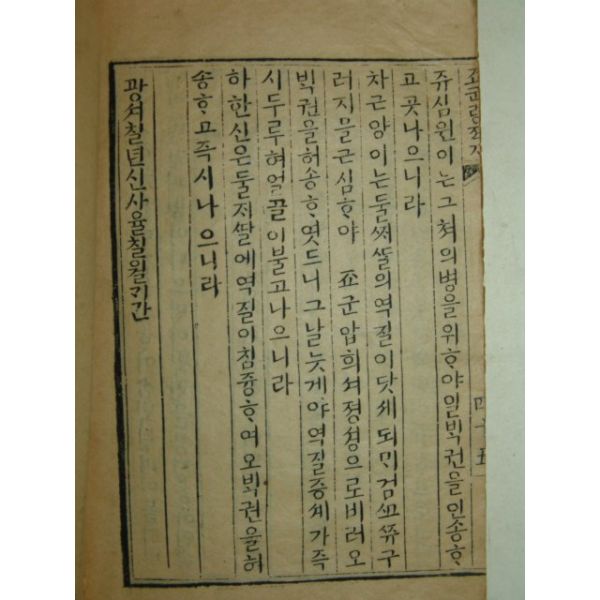 쥬심원이는그쳐의병을위ᄒᆞ야일ᄇᆡᆨ권을인송ᄒᆞ
고곳나으니라
차근양이는둘ᄶᆡᄯᆞᆯ의역질이닷ᄉᆡ되ᄆᆡ검
러지믈근심ᄒᆞ야 죠군압희셔졍셩으로비러오
ᄇᆡᆨ권을허송ᄒᆞ엿드니그날늣게야역질증셰가즉
시두루혀얼골이불고나으니라
하한신은둘ᄌᆡᄯᆞᆯ에역질이침즁ᄒᆞ여오ᄇᆡᆨ권을허
송ᄒᆞ고즉시나으니라
광셔칠년신사윤칠월ᄀᆡ간